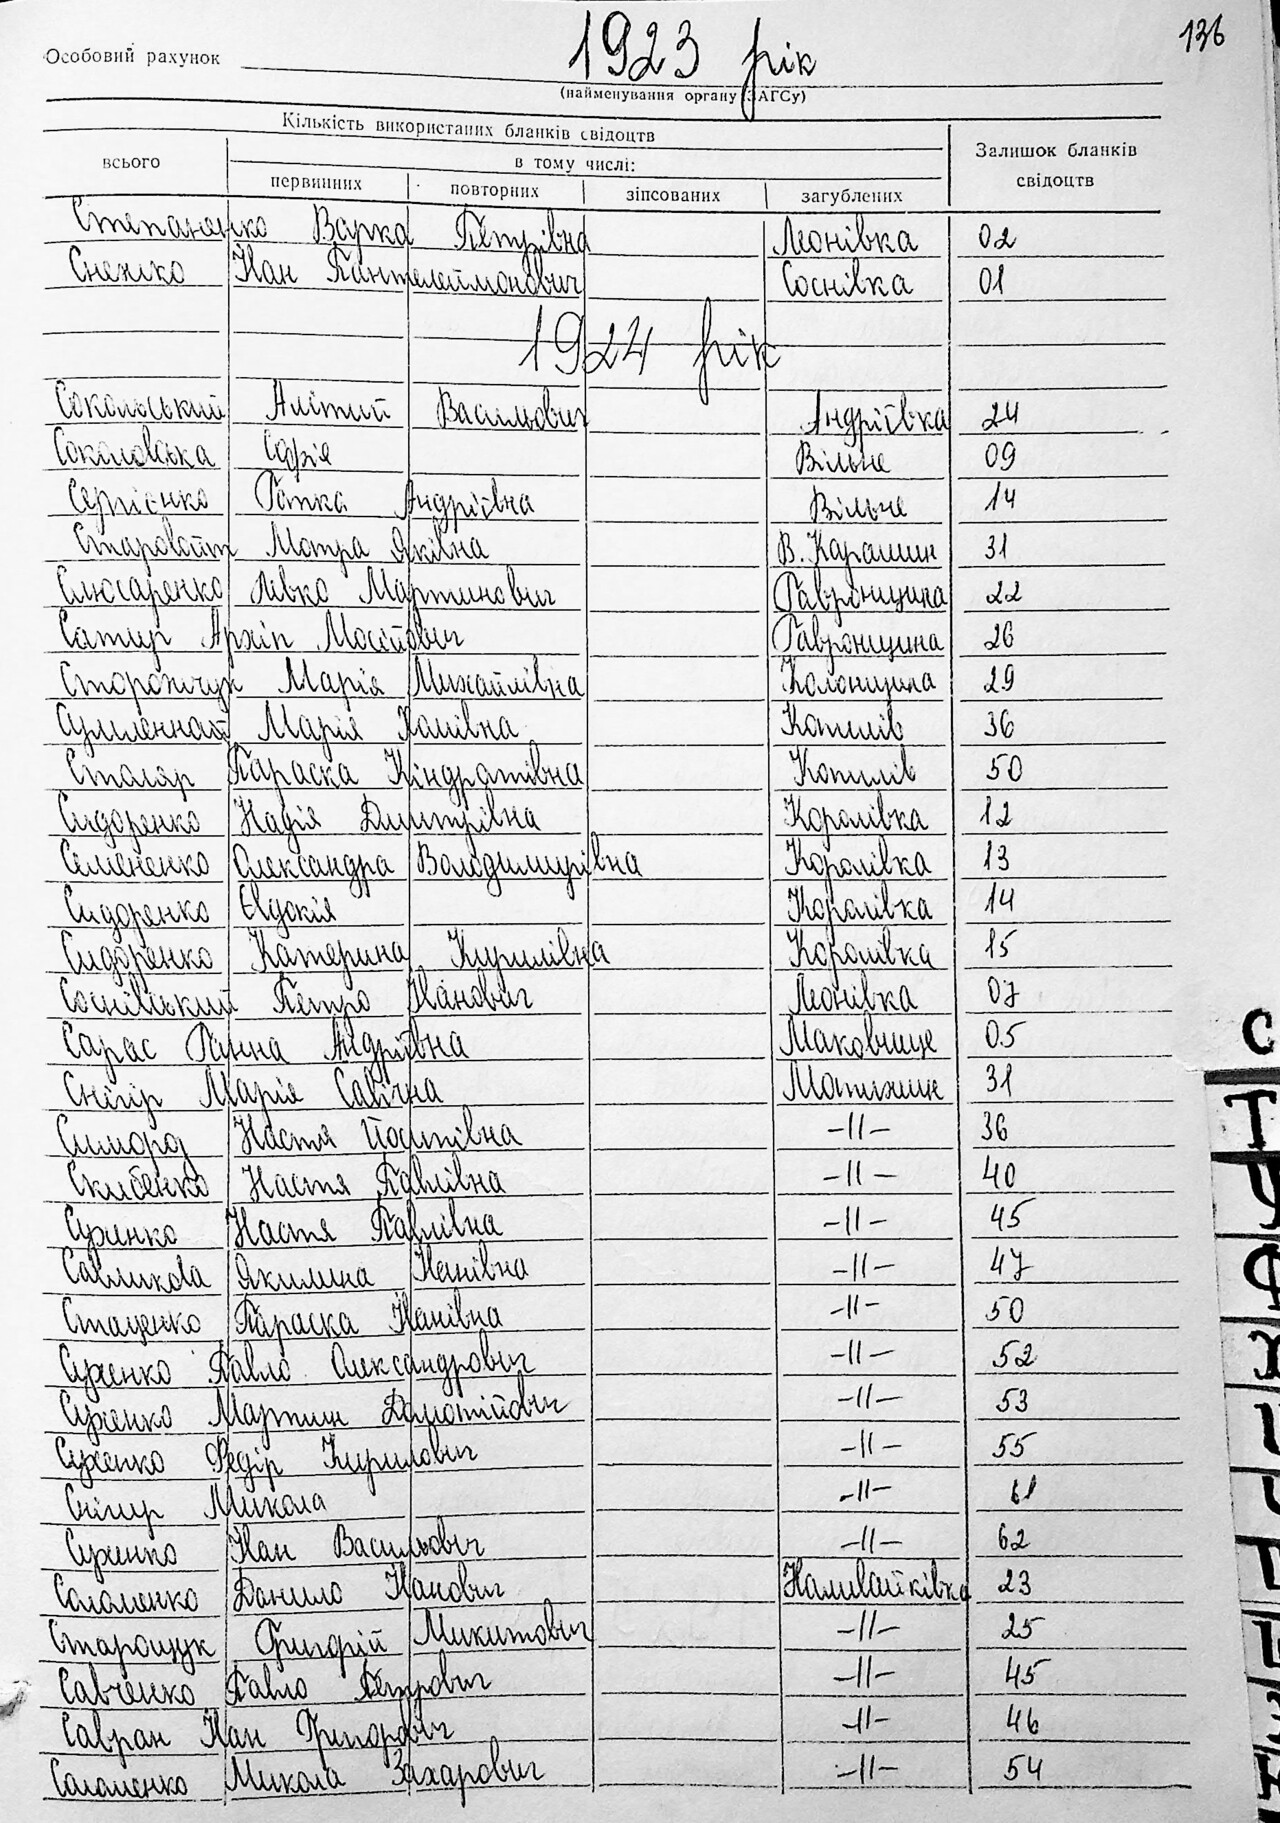 136
1923 рік
Особовий рахунок
(найменування органу ЗАГСу)
Кількість використаних бланків свідоцтв
всього
в тому числі:
Залишок бланків свідоцтв
первинних повторних зіпсованих загублених
Степаненко Варка Петрівна Леонівка 02
Снежко Іван Пантелеймонович Соснівка 01
1924 рік
Сокольський Васильович Андріївка 24
Соколовська Софія Вільне 09
Сергієнко Гапка Андріївна Вільне 14
Старовойт Мотра Яківна В. Карашин 31
Слюсаренко Левко Мартинович Гавронщина 22
Сатир Архіп Мосійович Гавронщина 26
Сторожчук Марія Михайлівна Колонщина 29
Марія Хомівна Копилів 36
Столяр Параска Кіндратівна Копилів 50
Сидоренко Надія Дмитрівна Королівка 12
Семененко Олександра Володимирівна Королівка 13
Сидоренко Євдокія Королівка 14
Сидоренко Катерина Кирилівна Королівка 15
Соснівський Петро Іванович Леонівка 07
Сарас Ганна Андріївна Маковище 05
Снігір Марія Савічна Мотижин 31
Симород Настя Йосипівна -//- 36
Скибенко Настя Павлівна -//- 40
Сухенко Настя Павлівна -//- 45
Савликова Якилина Іванівна -//- 47
Стаценко Параска Іванівна -//- 50
Сухенко Павло Олександрович -//- 52
Сухенко Мартин -//- 53
Сухенко Федір Кирилович -//- 55
Снігир Микола -//- 61
Сухенко Іван Васильович -//- 62
Соломенко Данило Іванович Наливайківка 23
Старощук Григорій Микитович -//- 25
Савченко Павло Петрович -//- 45
Савран Іван Григорович -//- 46
Соломенко Микола Захарович -//- 54